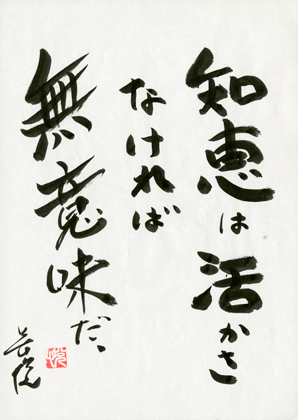 知恵は活かさ
なければ
無意味だ、